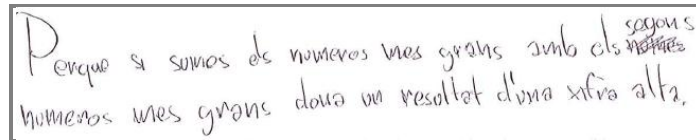 Perque si sumos els numeros mes grans amb els segons
numeros mes grans dona un resultat d'una xifra alta.